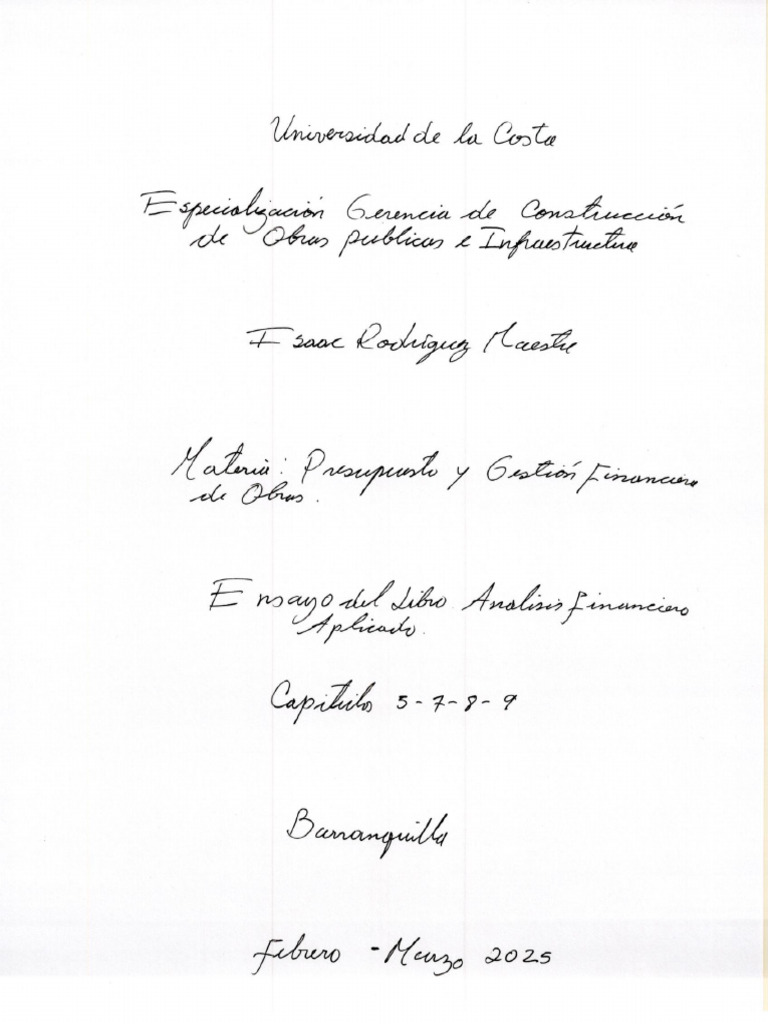 Universidad de la Costa
Especialización Gerencia de Construcción
de Obras publicas e Infraestructura
Isaac Rodriguez Maestre
Materia: Presupuesto y Gestión Financiera
de Obras.
Ensayo del Libro Analisis Financiero
Aplicado.
Capitulos 5-7-8-9
Barranquilla
Febrero - Marzo 2025